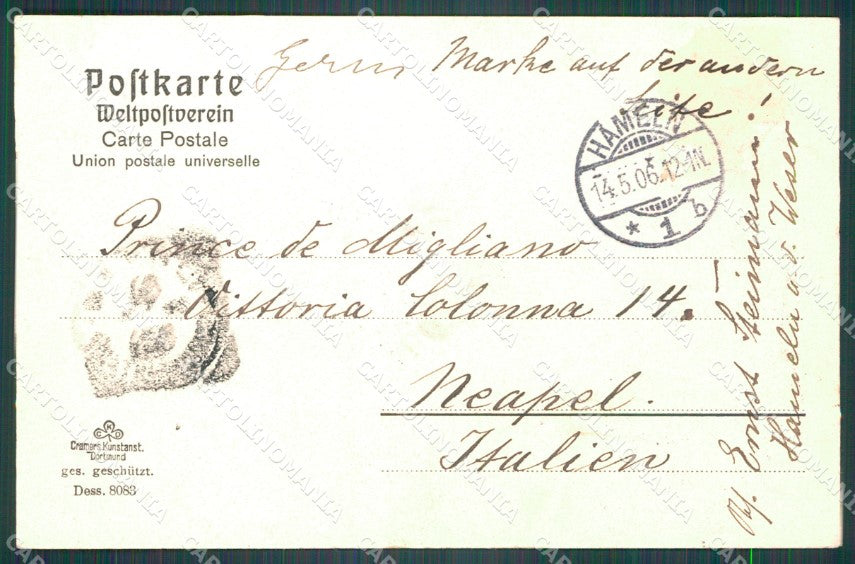 Germ Marke auf der andern
Seite!
Poſtkarte
Weltpoſtverein
Carte Postale
Union postale universelle
HAMELN
14.5.06.12-1N.
* 1 b
Prince de Migliano
Vittoria Colonna 14.
Neapel.
Italien
Ernst Steimann
Hameln a. d. Weser
CKD
Cramers Kunstanst.
Dortmund
ges. geschützt.
Dess. 8083
CARTOLINOMANIA